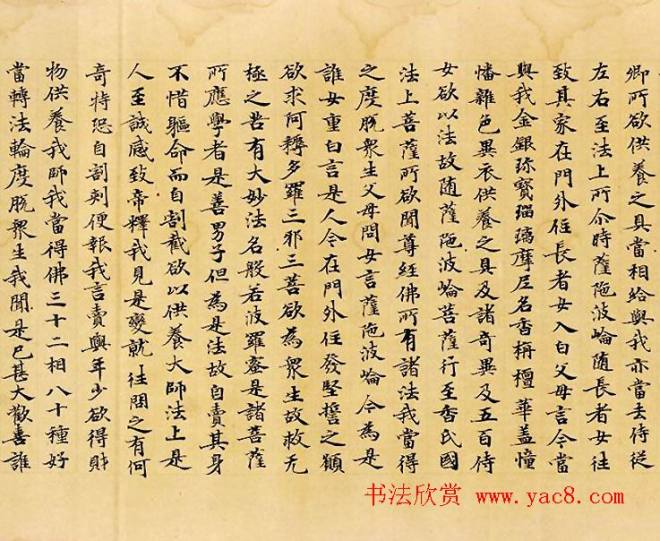 卿所欲供養之具當相給與我亦當去侍從
左右至法上所尒時薩陁波崘随長者女往
致其家在門外住長者女入白父母言今當
與我金銀珎寳瑠璃摩尼名香栴檀華盖幢
幡雜色異衣供養之具及諸奇異及五百侍
女欲以法故随薩陁波崘菩薩行至香氏國
法上菩薩所欲聞尊經佛所有諸法我當得
之度脱衆生父母問女言薩陁波崘今為是
誰女重白言是人今在門外住發堅誓之願
欲求阿耨多羅三邪三菩欲為衆生故救无
極之苦有大妙法名般若波羅蜜是諸菩薩
所應學者是善男子但為是法故自賣其身
不惜軀命而自割截欲以供養大師法上是
人至誠感致帝釋我見是變就往問之有何
奇特恐自割刾便報我言賣與年少欲得財
物供養我師我當得佛三十二相八十種好
當轉法輪度脱衆生我聞是已甚大歡喜誰
书法欣赏 www.yac8.com